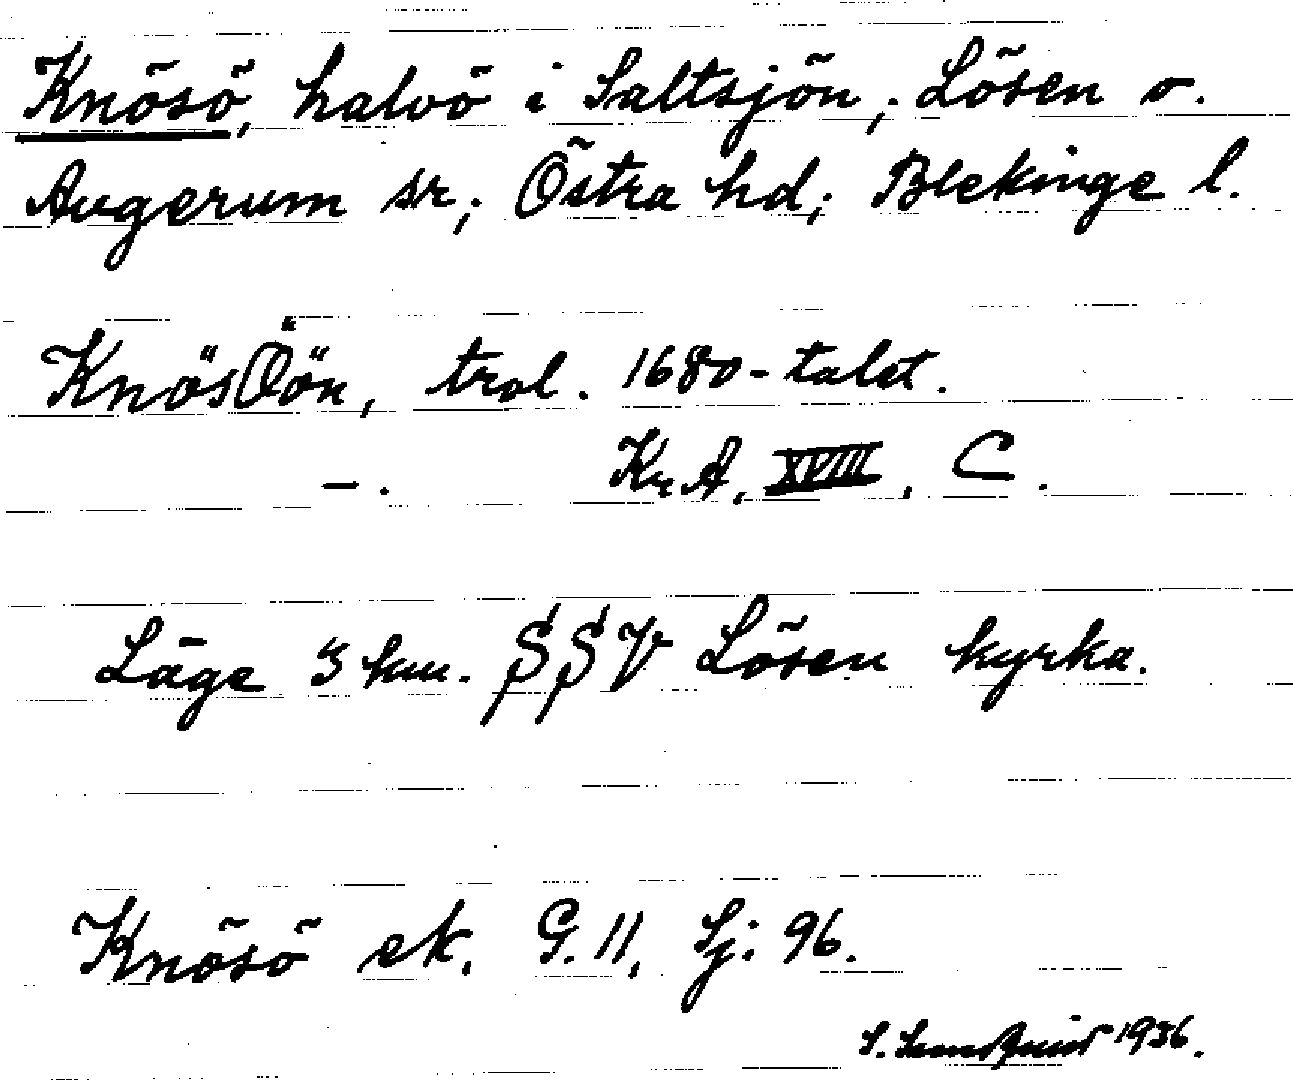 Knösö, halvö i Saltsjön; Lösen o.
Augerum sr; Östra hd; Blekinge l.
KnösÖön, trol. 1680-talet.
—. Kr A. XVIII. C.
Läge 3 km. SSV Lösen kyrka.
Knösö ek. G. 11, Sj: 96.
S. Sandquist 1936.